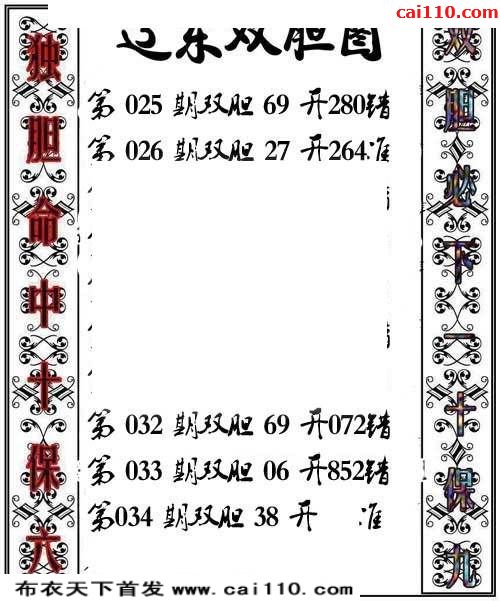 cai110.com
辽东双胆图
独胆命中十保六
双胆必下一十保九
第 025 期双胆 69 开280错
第 026 期双胆 27 开264准
第 032 期双胆 69 开072错
第 033 期双胆 06 开852错
第034 期双胆 38 开 准
布衣天下首发 www.cai110.com